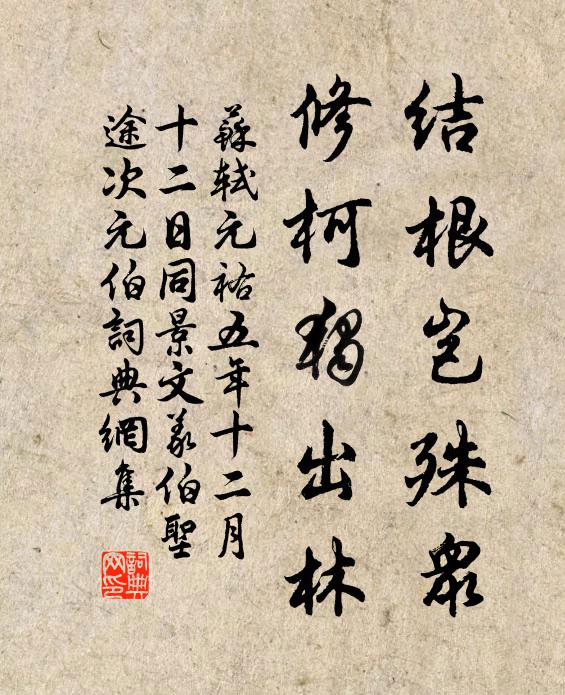 结根岂殊衆
修柯獨出林
蘇軾元祐五年十二月
十二日同景文義伯聖
途次元伯詞典網集
詞典網印